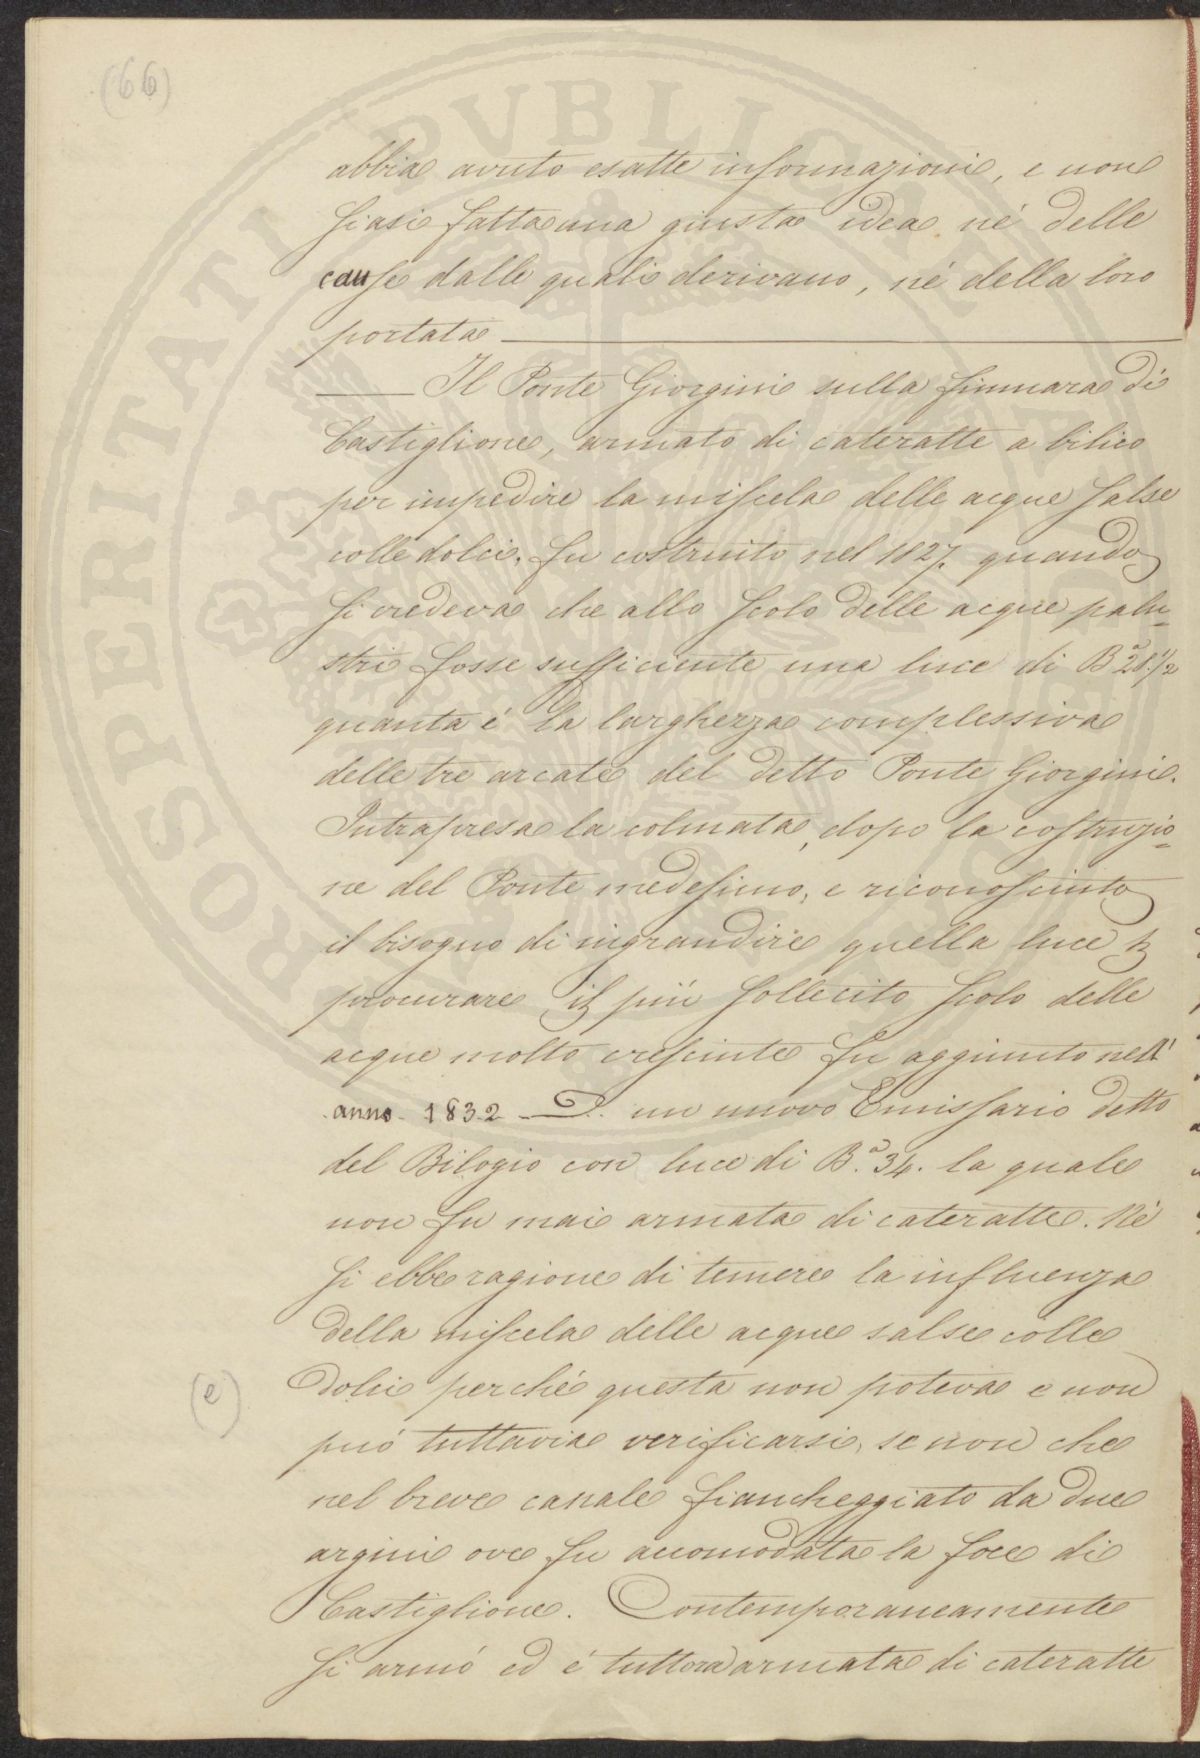 (66)
abbia avuto esatte informazioni, e non
siasi fatta una giusta idea né delle
cause dalle quali derivano, né della loro
portata
Il Ponte Giorgini sulla fiumara di
Castiglione, armato di cateratte a bilico
per impedire la miscela delle acque salse
colle dolci, fu costruito nel 1827. quando
si credeva che allo scolo delle acque palu=
stri fosse sufficiente una luce di B.a 28.1/2
quanta é la larghezza complessiva
delle tre arcate del detto Ponte Giorgini.
Intrapresa la colmata, dopo la costruzio=
ne del Ponte medesimo, e riconosciuto
il bisogno di ingrandire quella luce
procurare il piú sollecito scolo delle
acque molto cresciute fu aggiunto nell'
anno 1832 un nuovo Emissario detto
del Bilogio con luce di B.a 34. la quale
non fu mai armata di cateratte. Né
si ebbe ragione di temere la influenza
della miscela delle acque salse colle
dolci perché questa non poteva e non
puó tuttavia verificarsi, se non che
(e)
nel breve canale fiancheggiato da due
argini ove fu accomodata la foce di
Castiglione. Contemporaneamente
si armó ed é tuttora armata di cateratte
PROSPERITATI PVBLICAE